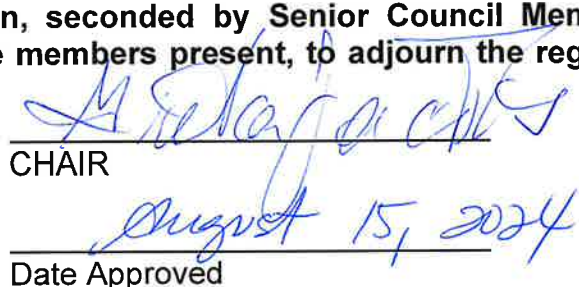 n, seconded by Senior Council Mem
e members present, to adjourn the reg
CHAIR
August 15, 2024
Date Approved